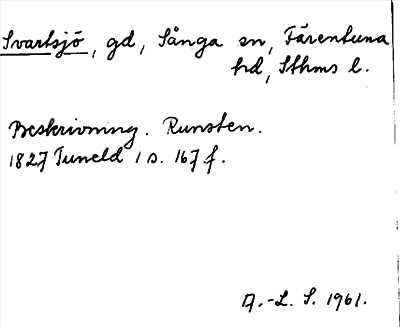 Svartsjö, gd, Sånga sn, Färentuna
hd, Sthms l.
Beskrivning. Runsten.
1827 Tuneld 1 s. 167 f.
A.-L. S. 1961.